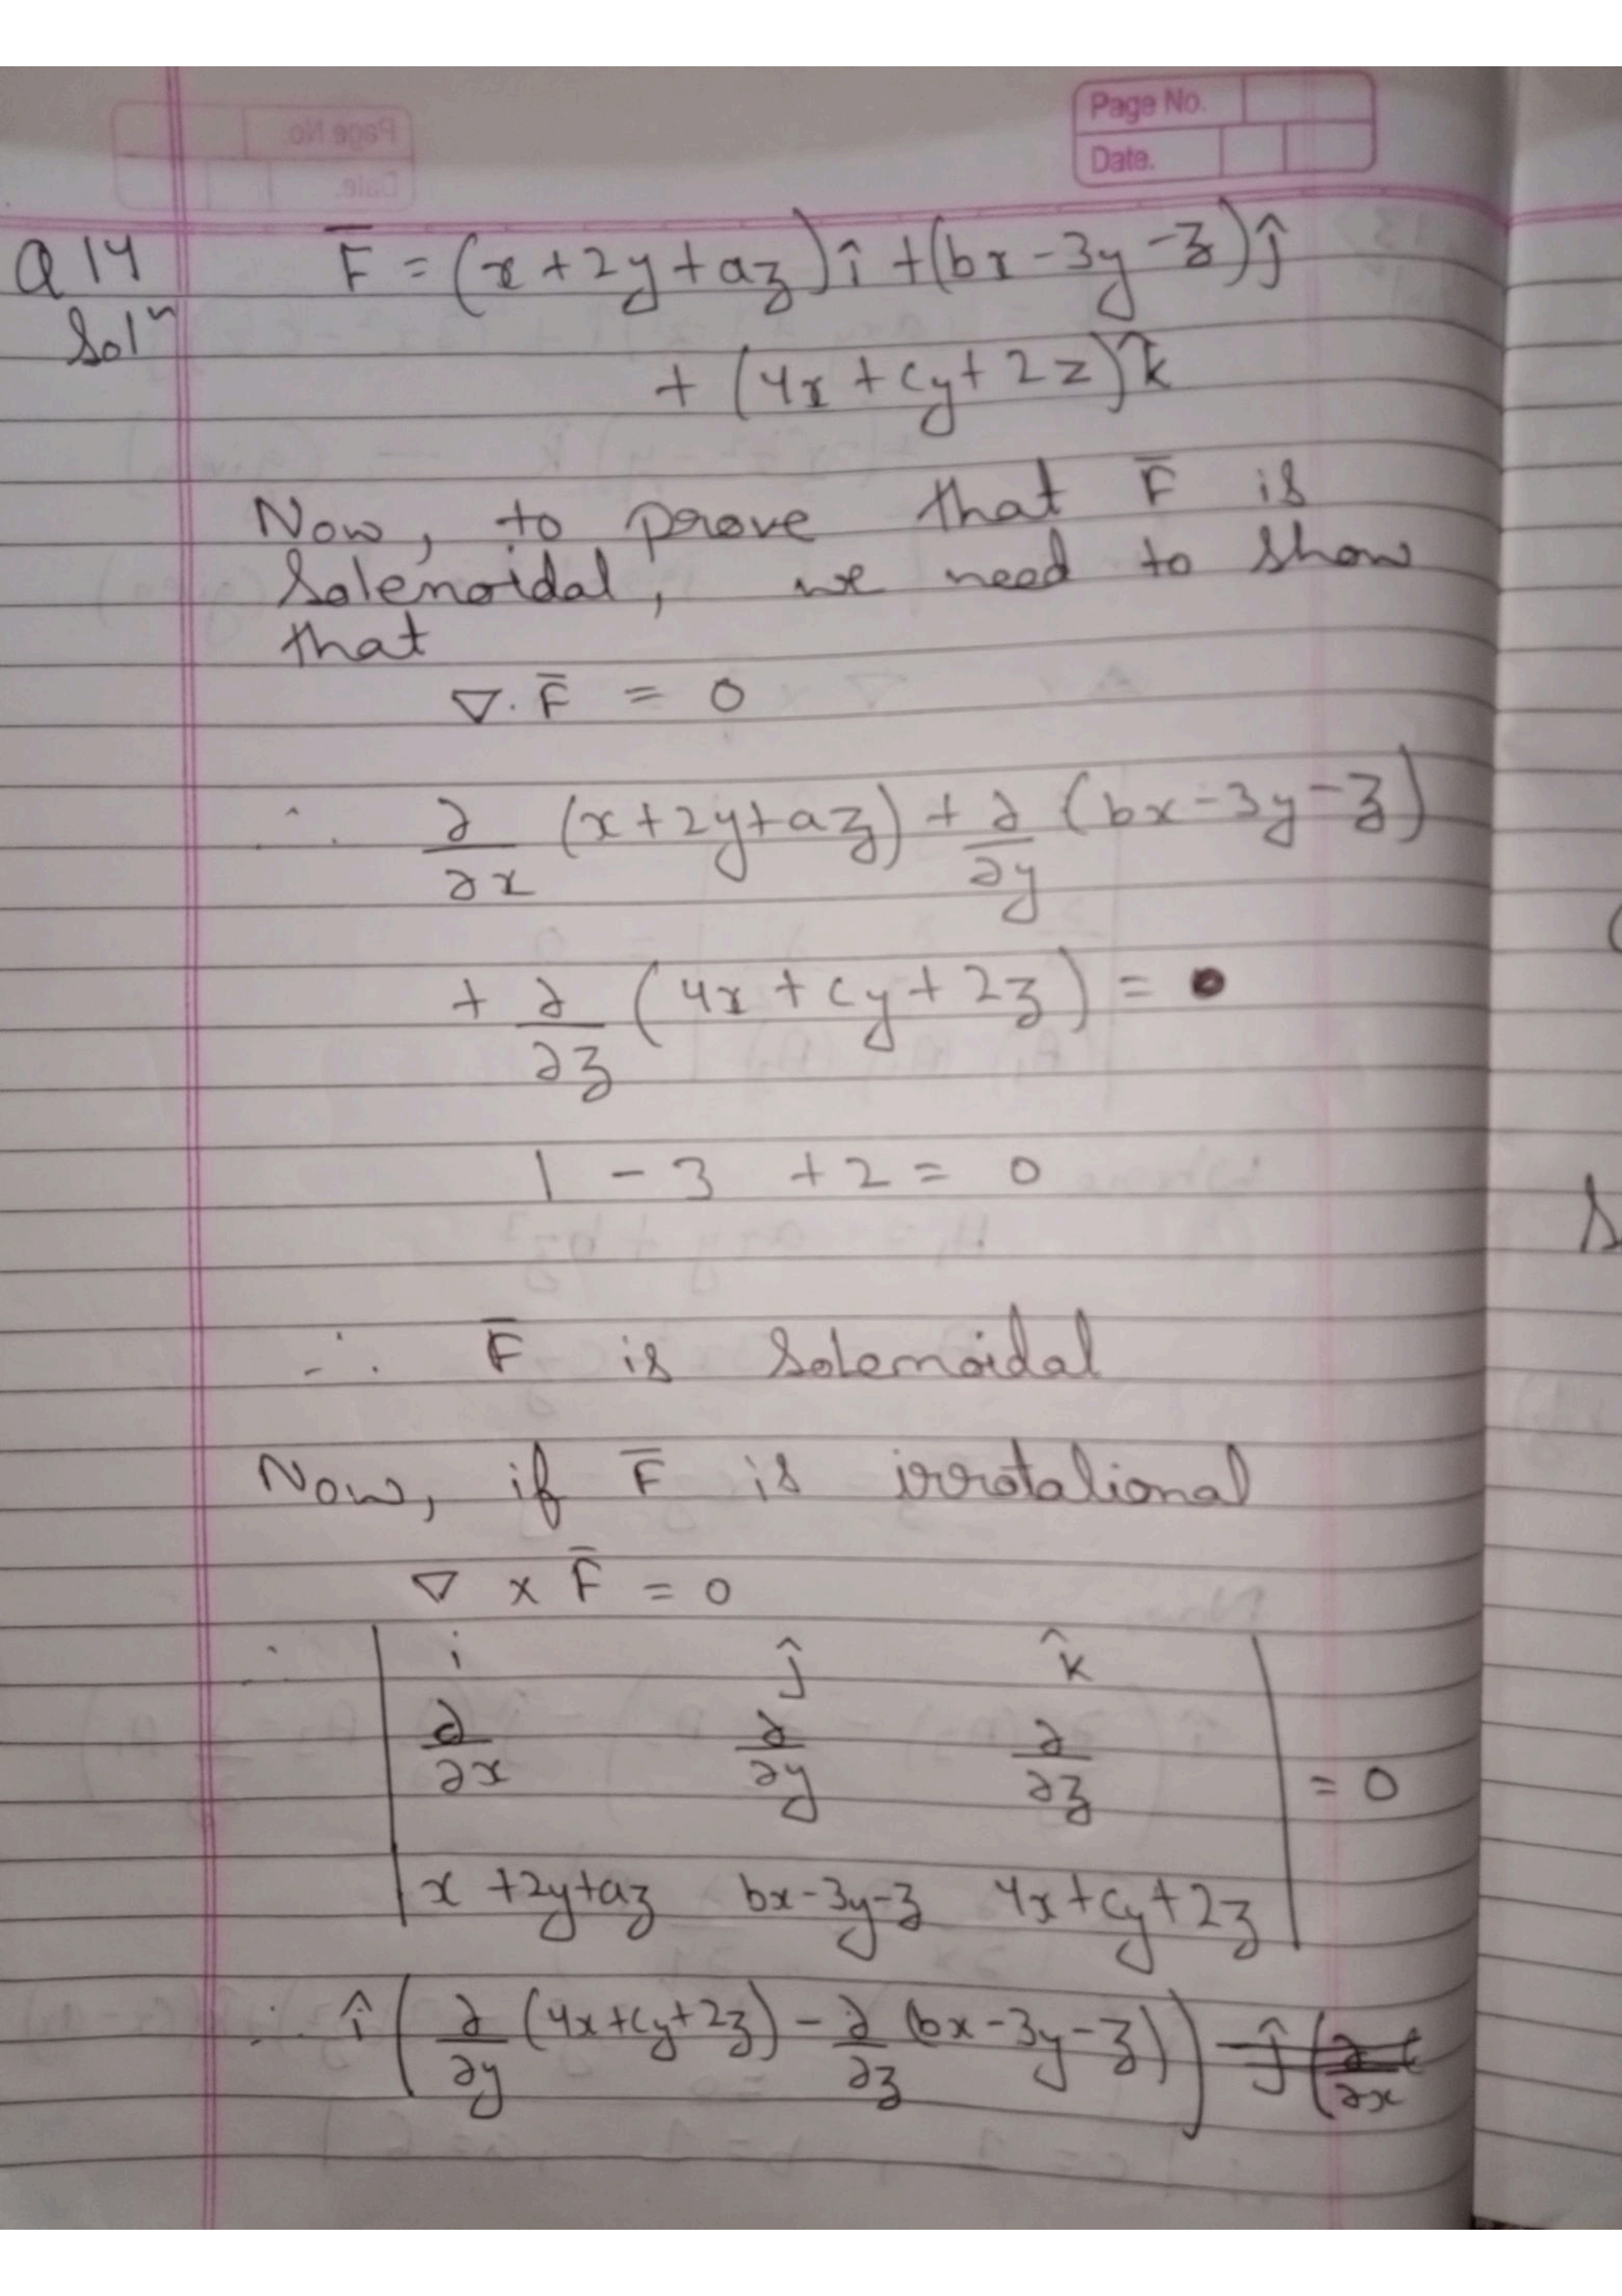 Page No.
Date.
Q14 F̄ = (x + 2y + az)î + (bx - 3y - z)ĵ
Solⁿ
+ (4x + cy + 2z)k̂
Now, to prove that F̄ is
Solenoidal, we need to show
that
∇. F̄ = 0
∴ ∂/∂x (x + 2y + az) + ∂/∂y (bx - 3y - z)
+ ∂/∂z (4x + cy + 2z) = 0
1 - 3 + 2 = 0
∴ F̄ is Solenoidal
Now, if F̄ is irrotational
∇ × F̄ = 0
∴ | i ĵ k̂ |
| ∂/∂x ∂/∂y ∂/∂z | = 0
| x + 2y + az bx - 3y - z 4x + cy + 2z |
∴ î ( ∂/∂y (4x + cy + 2z) - ∂/∂z (bx - 3y - z) ) - ĵ ( ∂/∂x